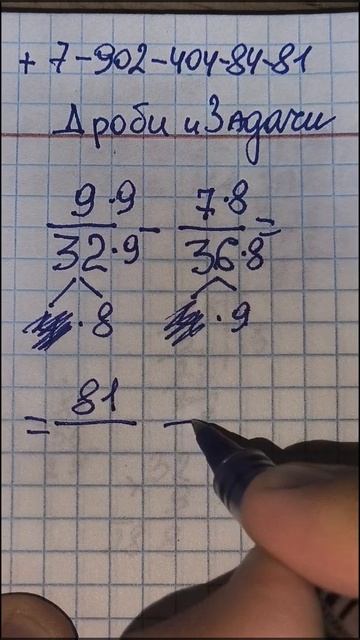 +7-902-404-84-81
Дроби и Задачи
9·9 7·8
32·9 - 36·8 =
·8 ·9
= 81